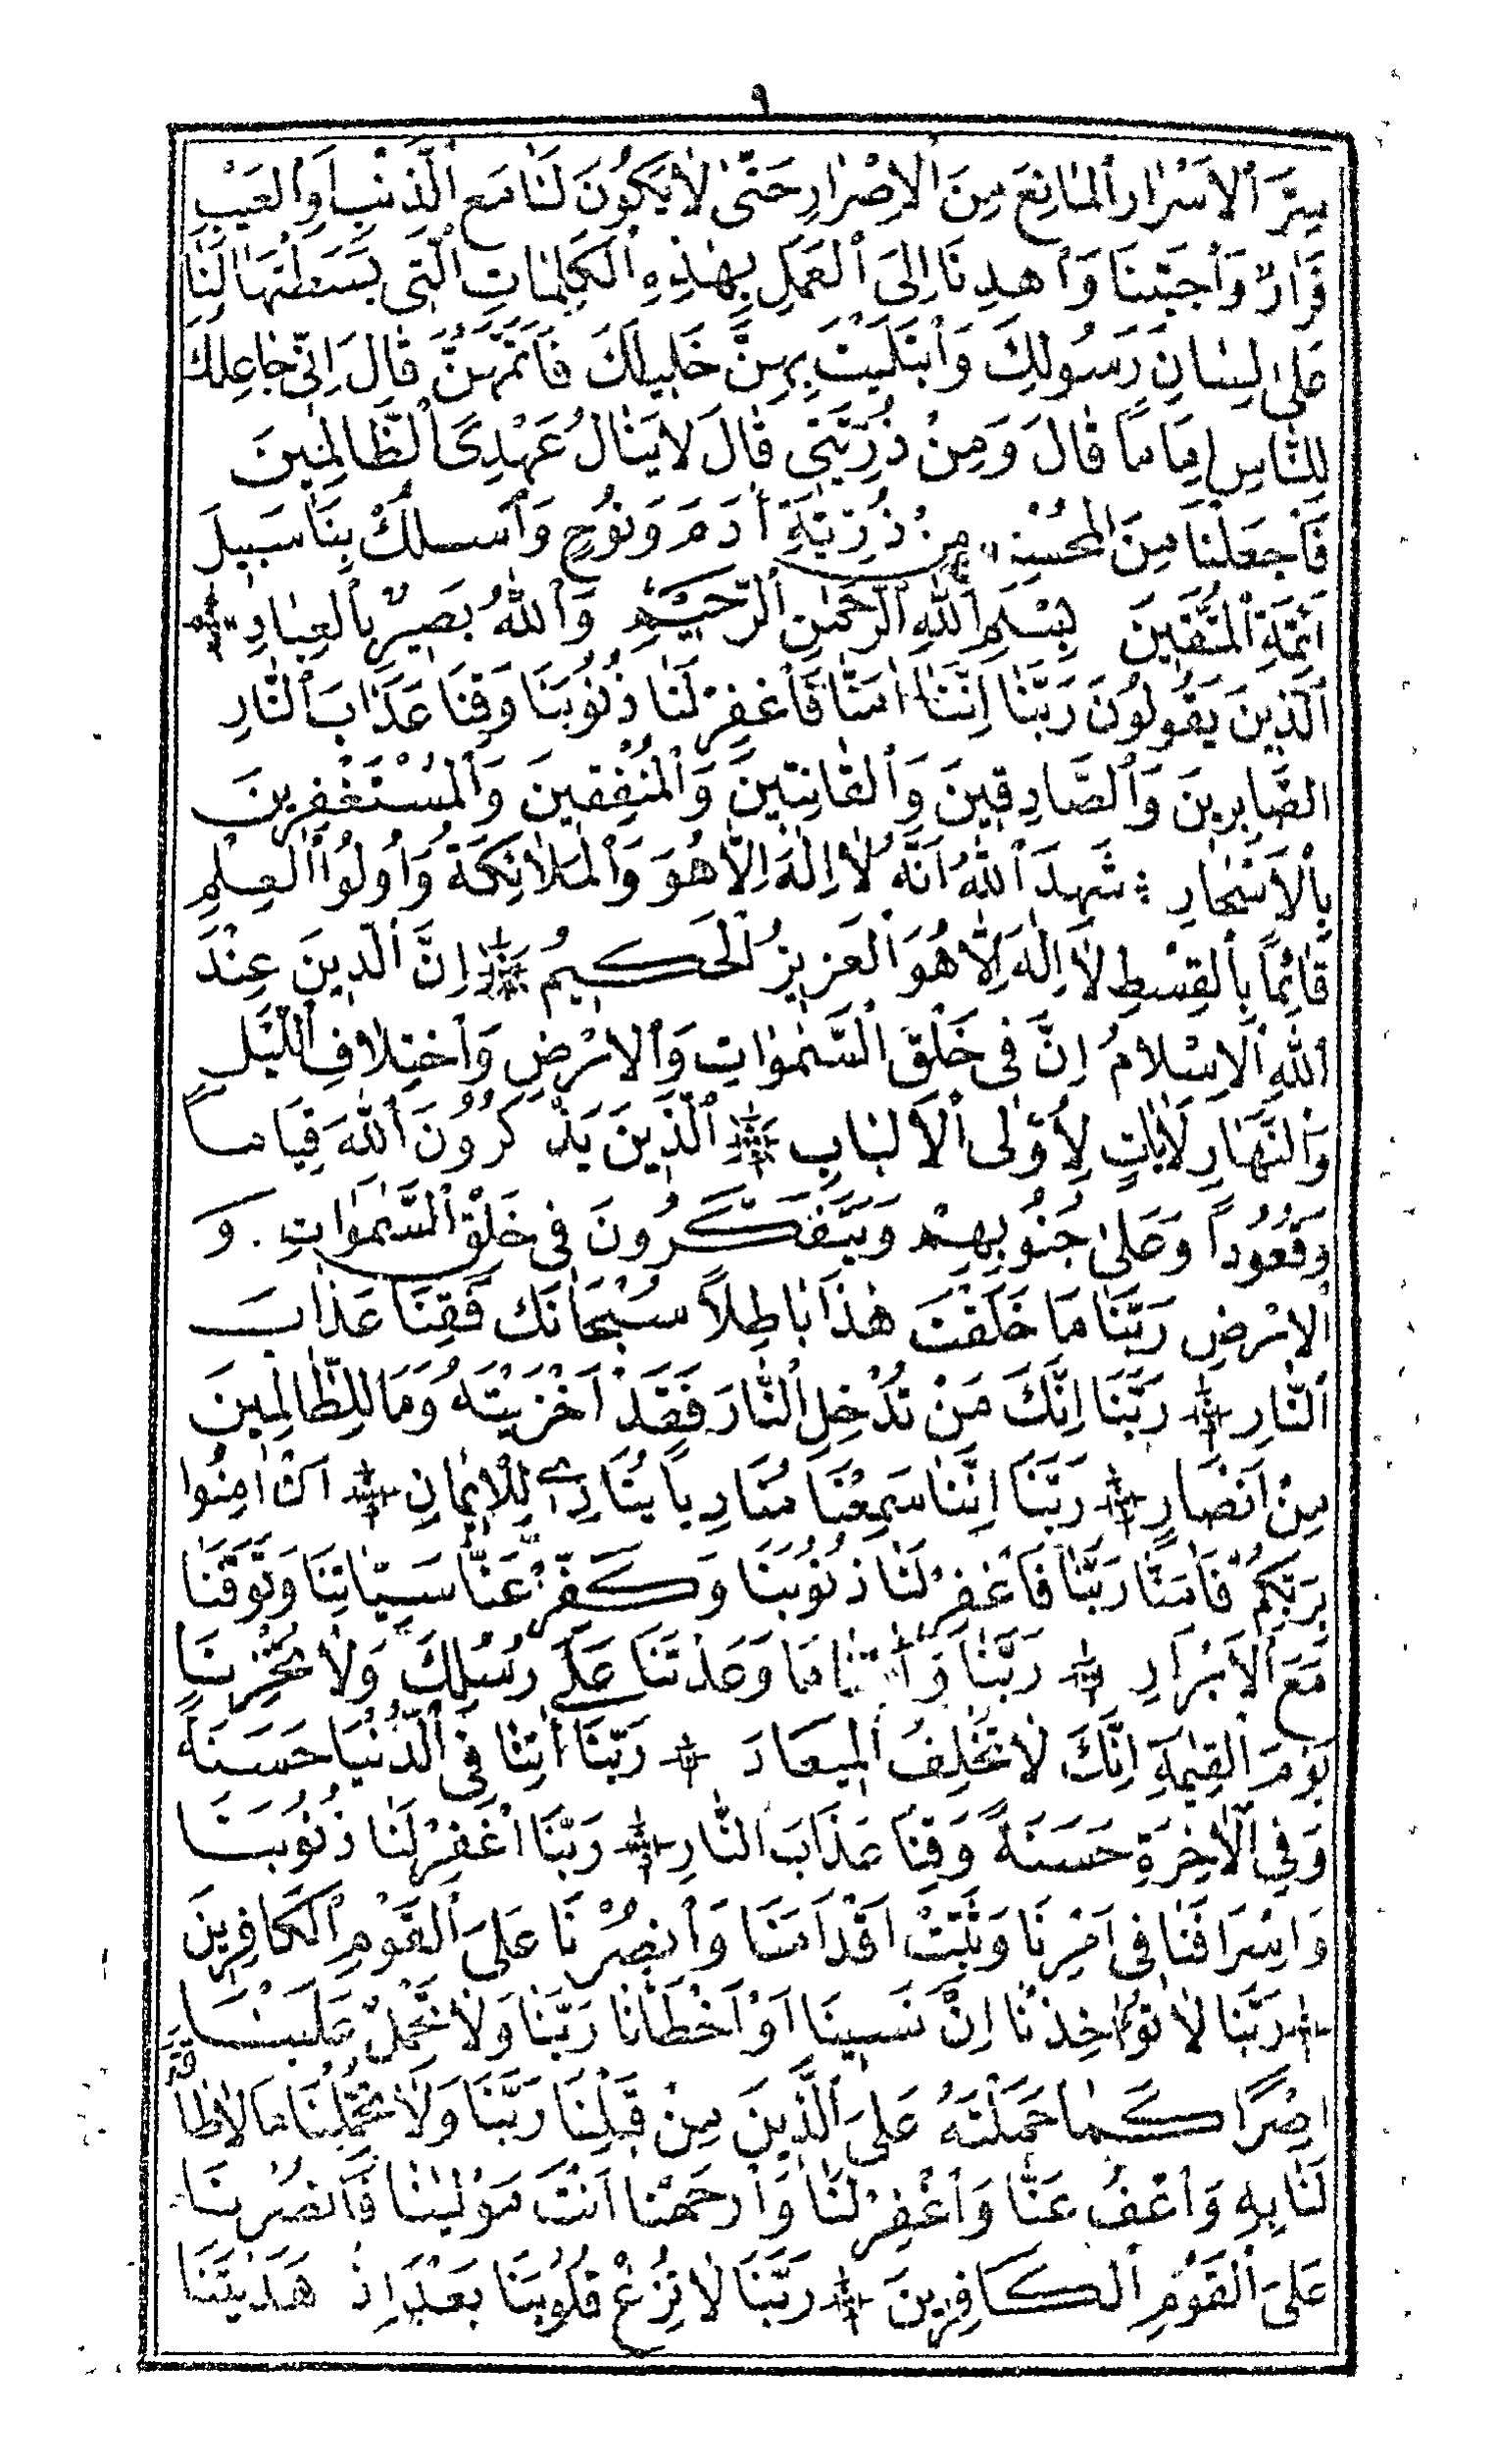 ٩
سِرَّ ٱلْاَسْرٰارِ ٱلْمٰانِعَ مِنَ ٱلْاِصْرٰارِ حَتّىٰ لٰا يَكُونَ لَنٰا مَعَ ٱلَّذنْبِ وَٱلعَيْبِ
قَرٰارٌ وَٱجْتَبِنٰا وَٱهدِنَا اِلىَ ٱلْعَمَلِ بِهٰذِهِ ٱلْكَلِمٰاتِ ٱلَّتِى بَسَطْتَهٰا لَنٰا
عَلىٰ لِسٰانِ رَسُولِكَ وَٱبْتَلَيْتَ بِهِنَّ خَلِيلَكَ فَاَتَمَّهُنَّ قٰالَ اِنِّى جٰاعِلُكَ
لِلنّٰاسِ اِمَامًا قٰالَ وَمِنْ ذُرِّيَّتِى قٰالَ لاٰ يَنٰالُ عَهْدِىَ ٱلظّٰالِمِينَ
فَٱجْعَلْنٰا مِنَ ٱلْمُحْسِنِينَ مِنْ ذُرِّيَّةِ اٰدَمَ وَنُوحٍ وَٱسلُكْ بِنٰا سَبِيلَ
اَئِمَّةِ ٱلْمُتَّقِينَ بِسْمِ ٱللّٰهِ ٱلرَّحْمٰنِ ٱلرَّحِيْمِ وَٱللّٰهُ بَصِيرٌ بِٱلْعِبٰادِ
ٱلَّذِينَ يَقُولُونَ رَبَّنٰا اِنَّنٰا اٰمَنّٰا فَٱغْفِرْ لَنٰا ذُنُوبَنَا وَقِنَا عَذَابَ ٱلنّٰارِ
الصَّابِرِينَ وَٱلصَّادِقِينَ وَٱلْقٰانِتِينَ وَٱلْمُنْفِقِينَ وَٱلْمُسْتَغْفِرِينَ
بِٱلْاَسْحٰارِ شَهِدَ ٱللّٰهُ اَنَّهُ لٰا اِلٰهَ اِلّٰا هُوَ وَٱلْمَلٰائِكَةُ وَاُولُوا ٱلْعِلْمِ
قٰائِمًا بِٱلْقِسْطِ لٰا اِلٰهَ اِلّٰا هُوَ ٱلْعَزِيزُ ٱلْحَكِيمُ اِنَّ ٱلدِّينَ عِنْدَ
ٱللّٰهِ ٱلْاِسْلامُ اِنَّ فِى خَلْقِ ٱلسَّمٰوٰاتِ وَٱلْارْضِ وَٱخْتِلافِ ٱللَّيْلِ
وَٱلنَّهٰارِ لَاٰيٰاتٍ لِاُولِى ٱلْاَلْبٰابِ ٱلَّذِينَ يَذْكُرُونَ ٱللّٰهَ قِيَامًا
وَقُعُودًا وَعَلىٰ جُنُوبِهِمْ وَيَتَفَكَّرُونَ فِى خَلْقِ ٱلسَّمٰوَاتِ . وَ
ٱلْارْضِ رَبَّنٰا مَا خَلَقْتَ هٰذَا بٰاطِلاً سُبْحَانَكَ فَقِنَا عَذٰابَ
ٱلنّٰارِ رَبَّنَا اِنَّكَ مَنْ تُدْخِلِ ٱلنّٰارَ فَقَدْ اَخْزَيْتَهُ وَمَا لِلظّٰالِمِينَ
مِنْ اَنْصَارٍ رَبَّنَا اِنَّنٰا سَمِعْنَا مُنَادِيًا يُنَادِى لِلْاِيمٰانِ اَنْ اٰمِنُوا
بِرَبِّكُمْ فَاٰمَنّٰا رَبَّنٰا فَٱغْفِرْ لَنٰا ذُنُوبَنَا وَكَفِّرْ عَنّٰا سَيِّئاتِنَا وَتَوَفَّنٰا
مَعَ ٱلْاَبْرَارِ رَبَّنٰا وَاٰتِنٰا مَا وَعَدْتَنَا عَلىٰ رُسُلِكَ وَلٰا تُخْزِنٰا
يَوْمَ ٱلْقِيٰمَةِ اِنَّكَ لٰا تُخْلِفُ ٱلْمِيعَادَ رَبَّنَا اٰتِنٰا فِى ٱلدُّنْيَا حَسَنَةً
وَفِى ٱلْاٰخِرَةِ حَسَنَةً وَقِنٰا عَذَابَ النّٰارِ رَبَّنَا ٱغْفِرْ لَنٰا ذُنُوبَنٰا
وَاِسْرَافَنٰا فِى اَمْرِنَا وَثَبِّتْ اَقْدَامَنَا وَٱنْصُرْنَا عَلىَ ٱلْقَوْمِ ٱلْكَافِرِينَ
رَبَّنٰا لٰا تُؤٰاخِذْنٰا اِنْ نَسِينَا اَوْ اَخْطَأْنٰا رَبَّنٰا وَلٰا تَحْمِلْ عَلَيْنٰا
اِصْرًا كَمٰا حَمَلْتَهُ عَلىَ ٱلَّذِينَ مِنْ قَبْلِنٰا رَبَّنَا وَلٰا تُحَمِّلْنٰا مَا لاٰ طٰاقَةَ
لَنٰا بِهِ وَٱعْفُ عَنّٰا وَٱغْفِرْ لَنٰا وَٱرْحَمْنٰا اَنْتَ مَوْلَيٰنٰا فَٱنْصُرْنٰا
عَلىَ ٱلْقَوْمِ ٱلْكَافِرِينَ رَبَّنَا لٰا تُزِغْ قُلُوبَنَا بَعْدَ اِذْ هَدَيْتَنَا